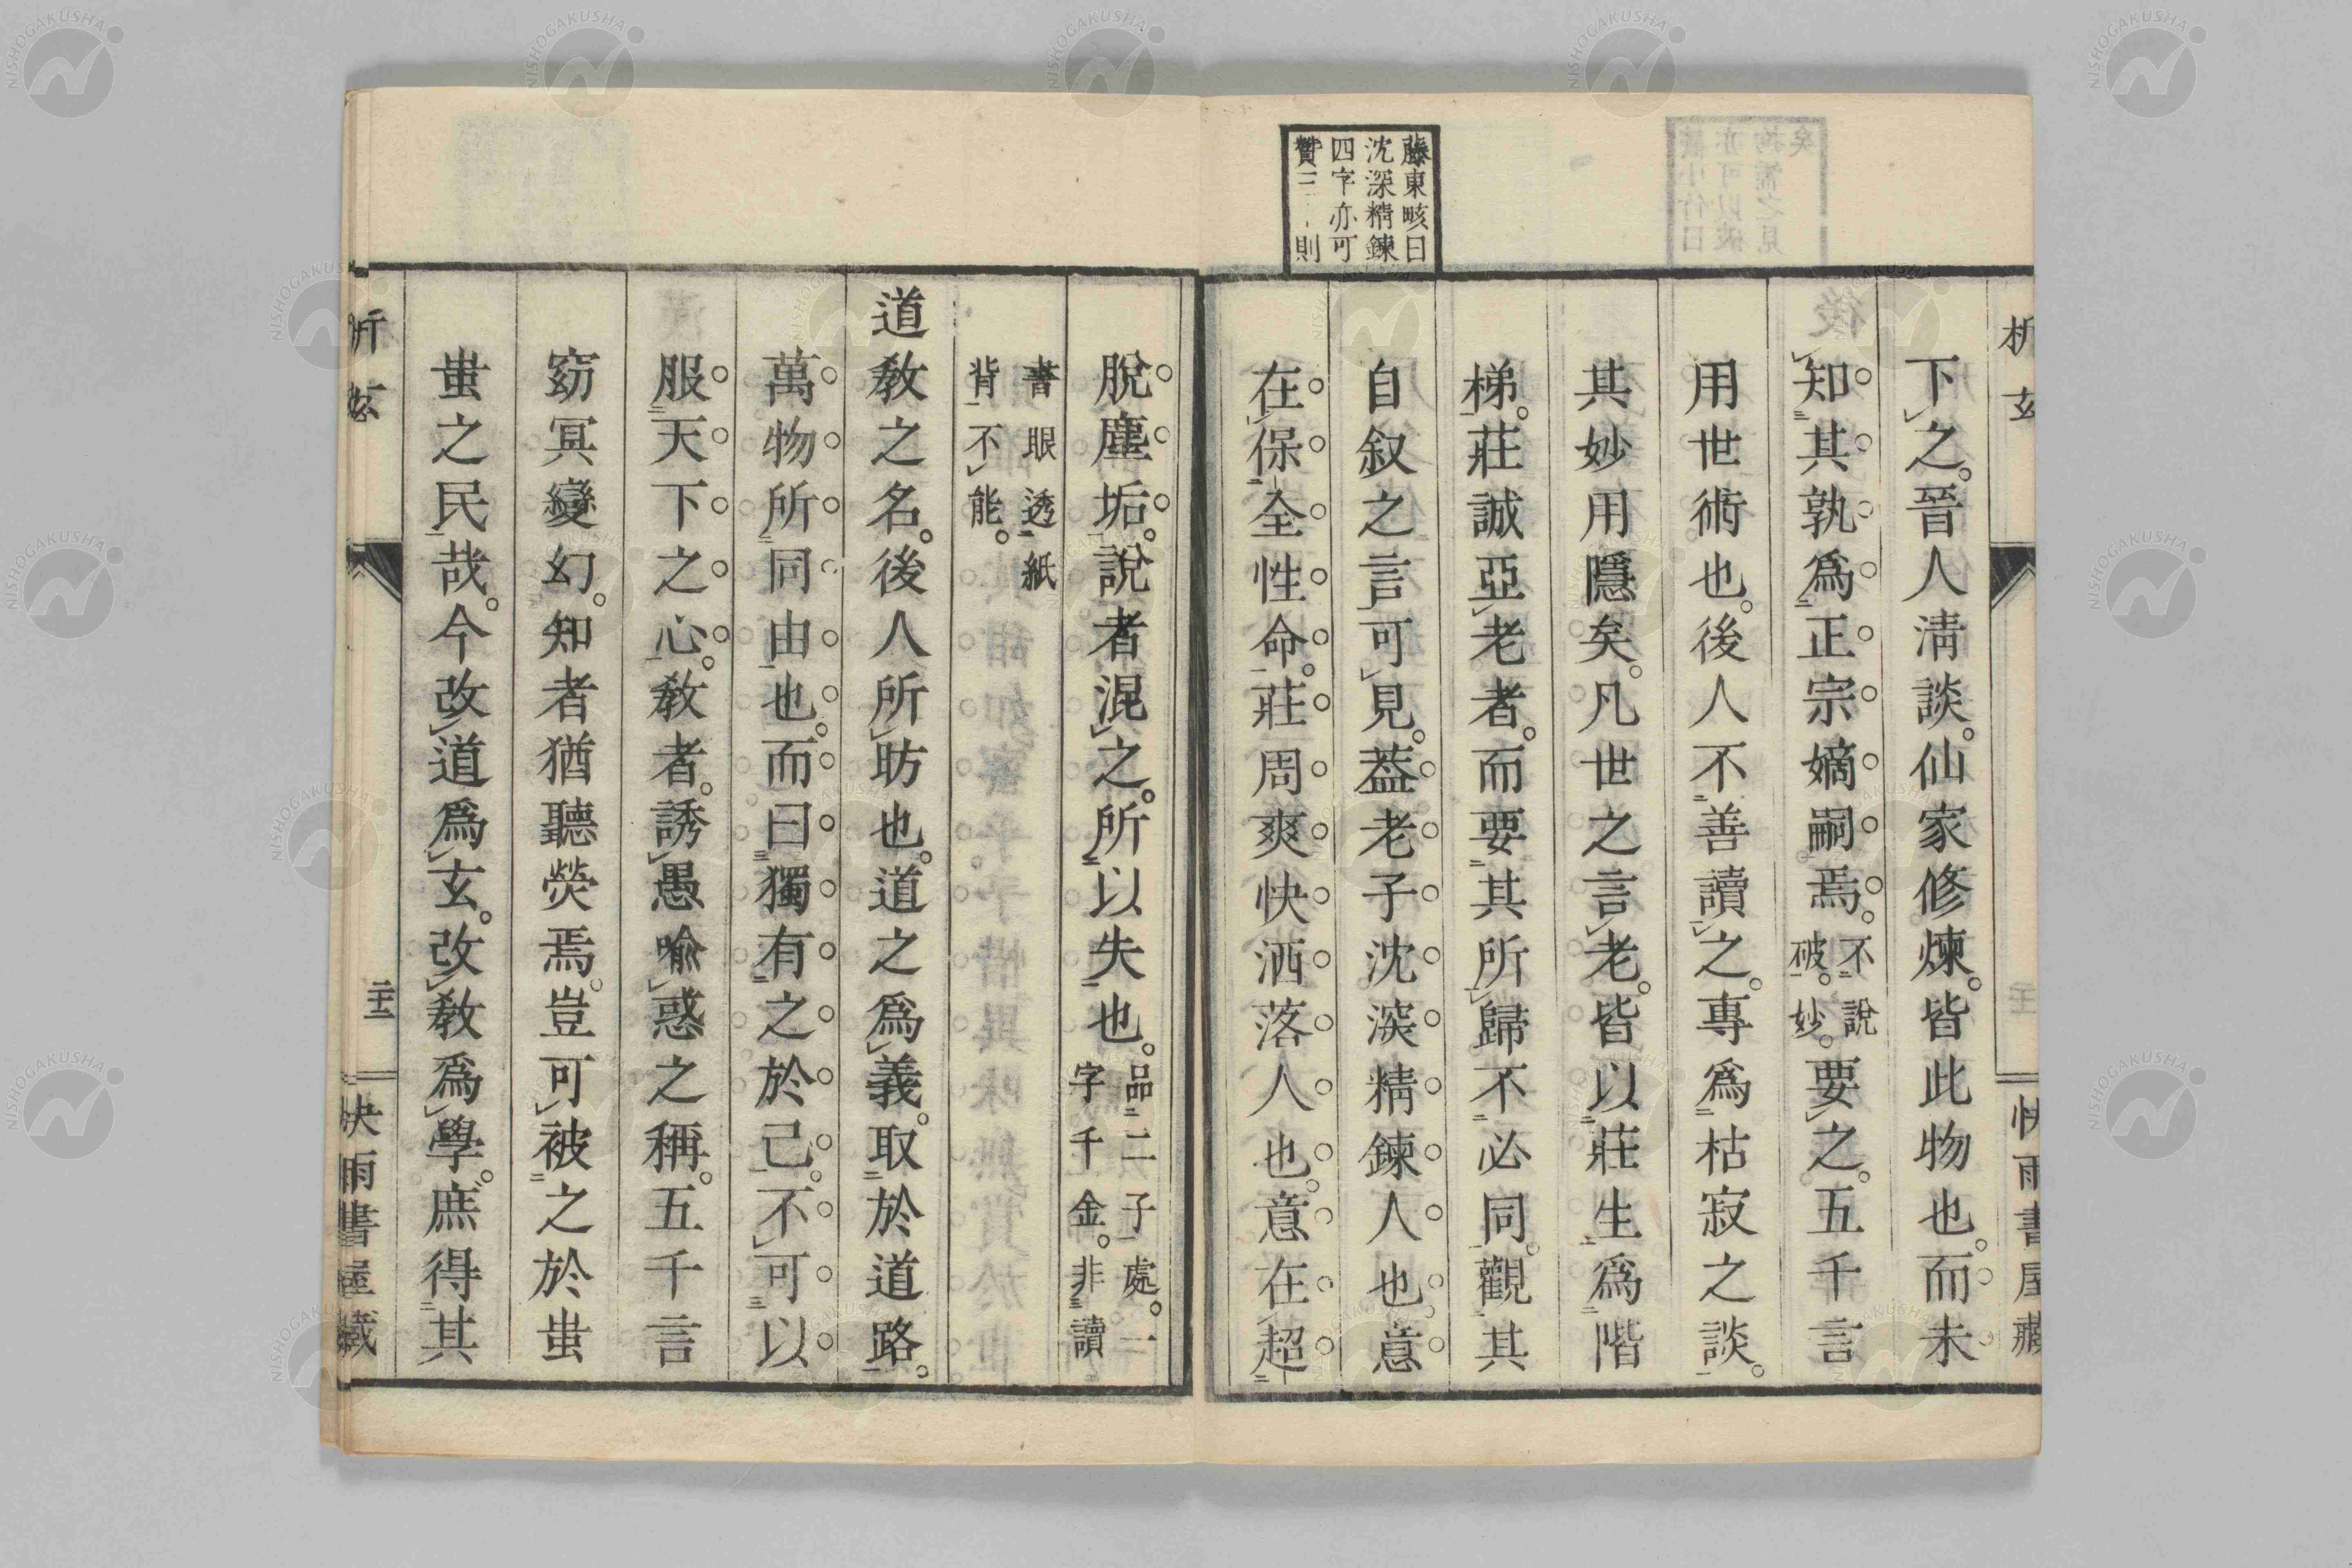 析玄
快雨書屋藏
下之。晉人淸談。仙家修煉。皆此物也。而未
知其孰爲正宗嫡嗣焉。不說破。妙。要之。五千言
用世術也。後人不善讀之。專爲枯寂之談。
其妙用隱矣。凡世之言老。皆以莊生爲階
梯。莊誠亞老者。而要其所歸不必同。觀其
自叙之言可見。葢老子沈深精鍊人也。意
在保全性命。莊周爽快洒落人也。意在超
藤東畡曰
沈深精鍊
四字亦可
贊三 則
脫塵垢。說者混之。所以失也。品二子處。一字千金。非讀
書眼透紙背不能。
道敎之名。後人所昉也。道之爲義。取於道路。
萬物所同由也。而曰獨有之於己。不可以
服天下之心。敎者。誘愚喩惑之稱。五千言
窈冥變幻。知者猶聽熒焉。豈可被之於蚩
蚩之民哉。今改道爲玄。改敎爲學。庶得其
析玄
二十二
快雨書屋藏
NISHOGAKUSHA